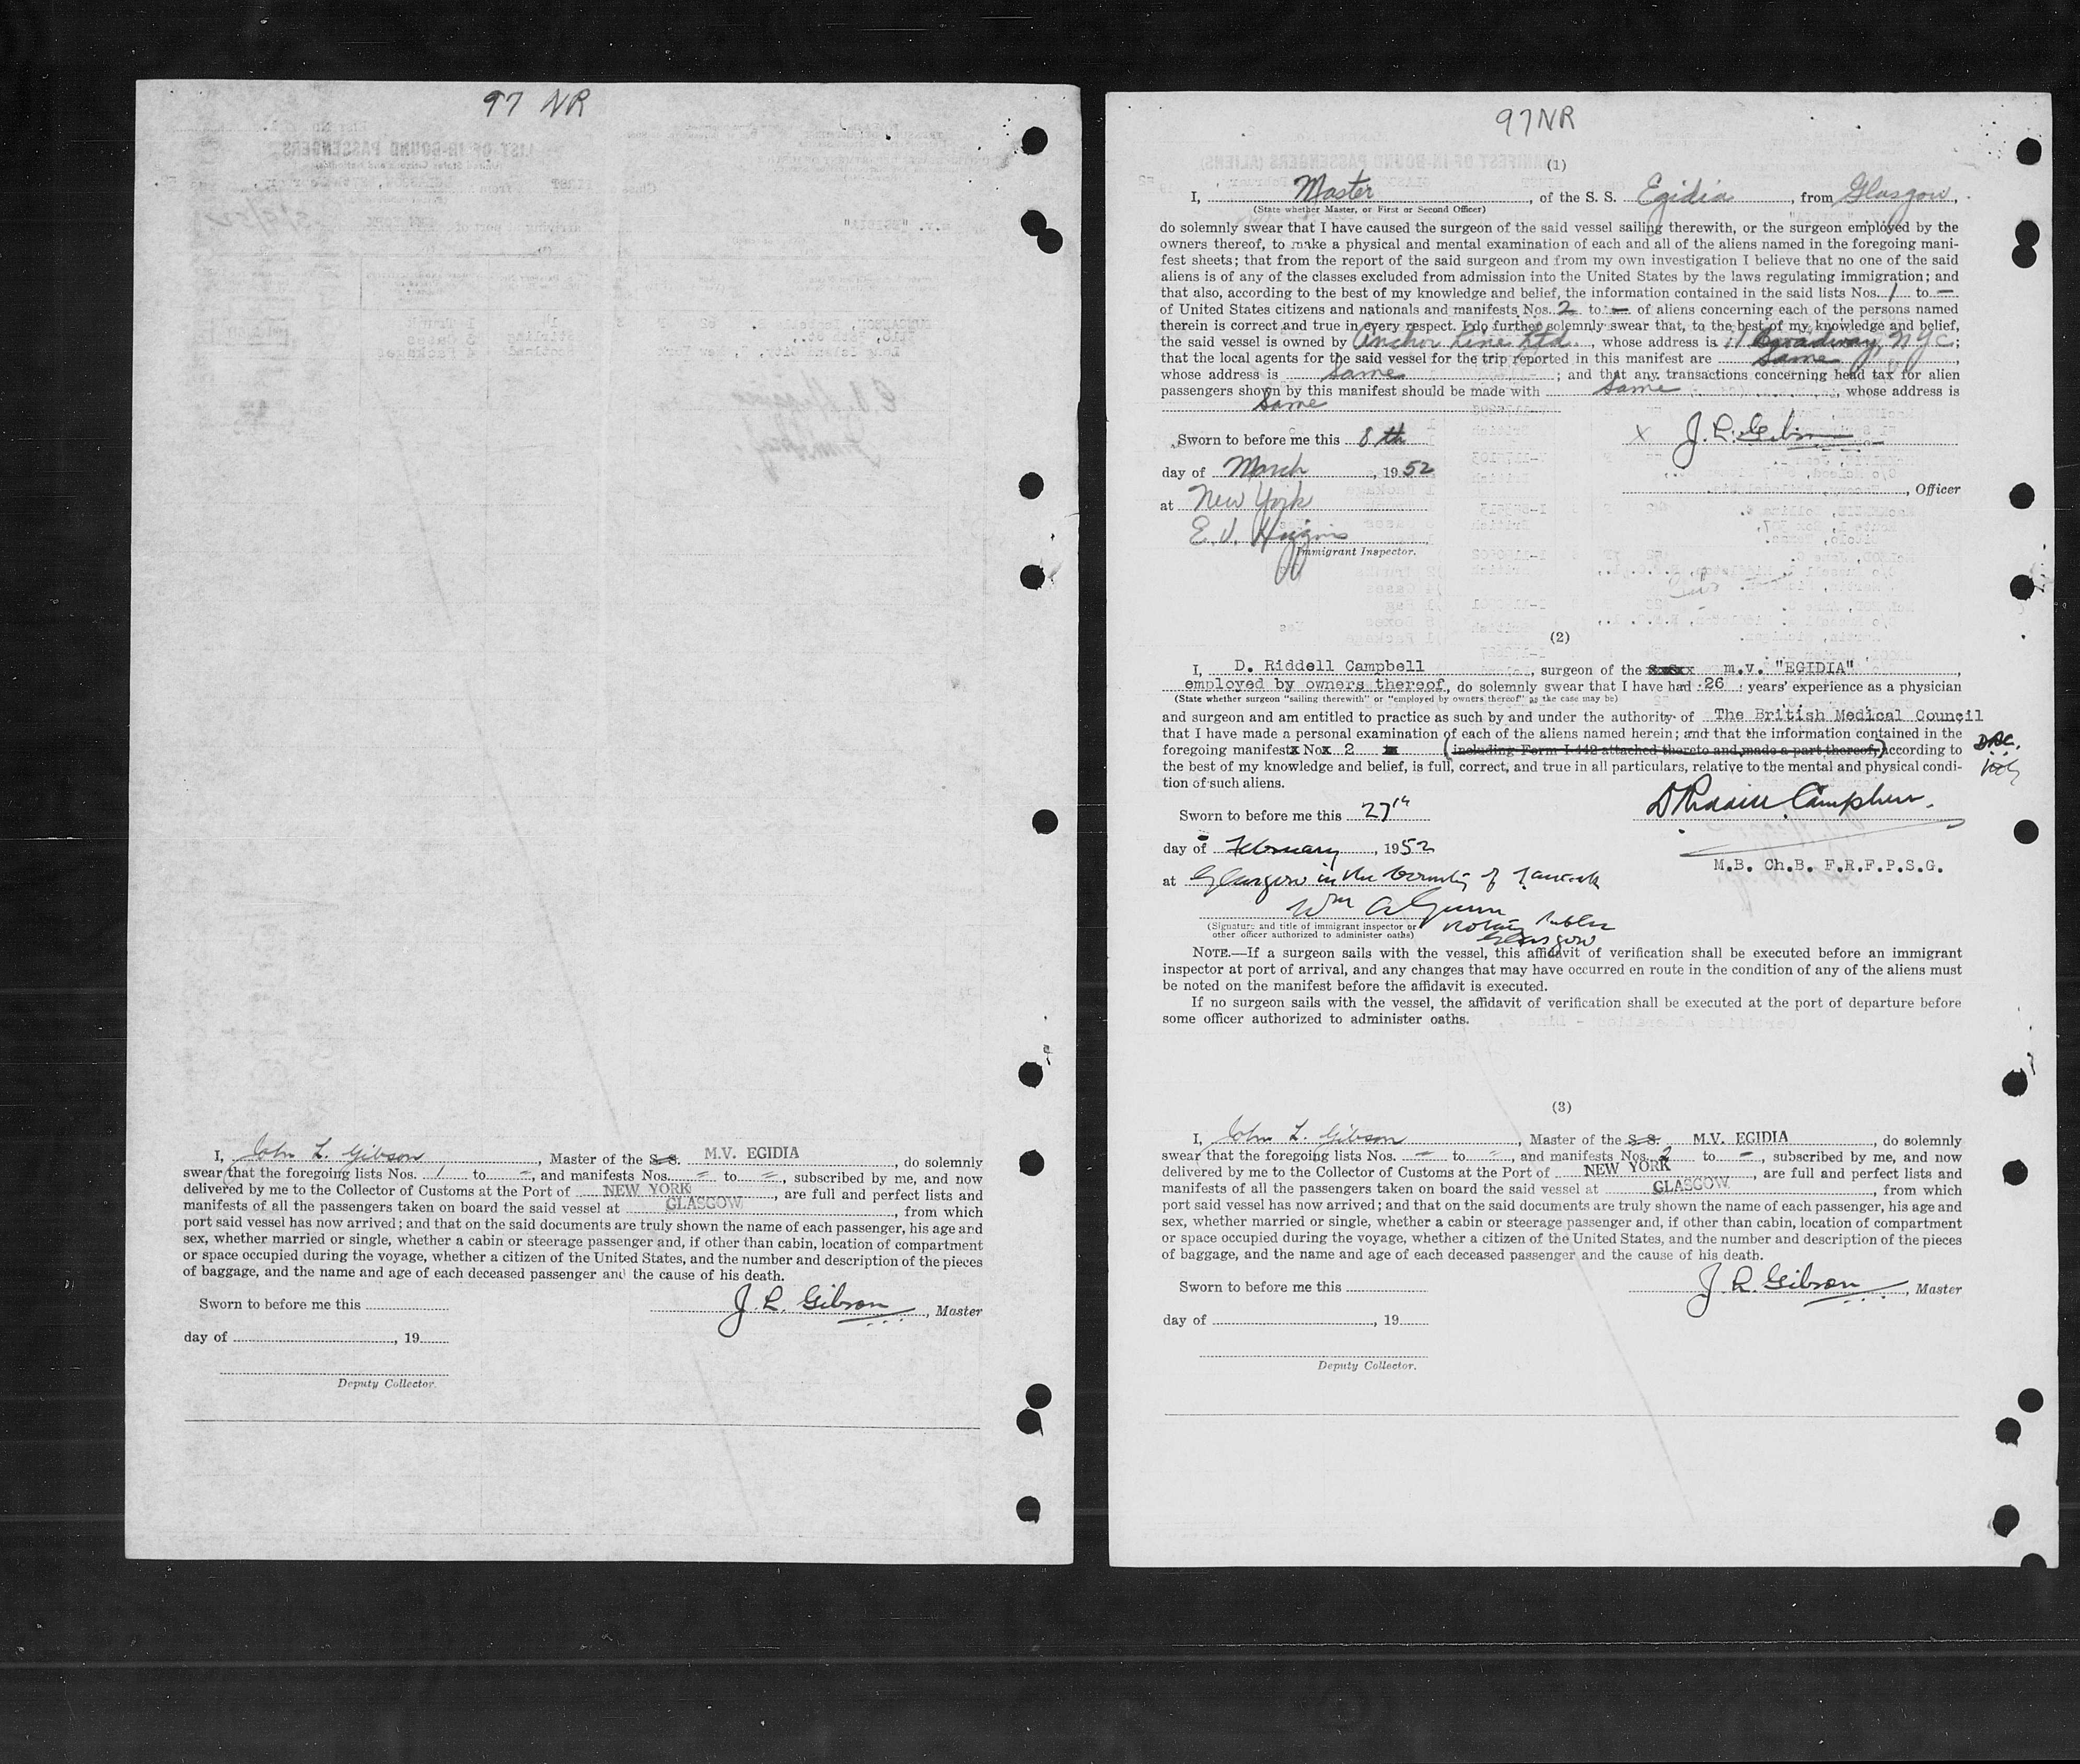 97 NR
I, John L. Gibson, Master of the S. S. M.V. EGIDIA, do solemnly
swear that the foregoing lists Nos. 1 to –, and manifests Nos. – to –, subscribed by me, and now
delivered by me to the Collector of Customs at the Port of NEW YORK, are full and perfect lists and
manifests of all the passengers taken on board the said vessel at GLASGOW, from which
port said vessel has now arrived; and that on the said documents are truly shown the name of each passenger, his age and
sex, whether married or single, whether a cabin or steerage passenger and, if other than cabin, location of compartment
or space occupied during the voyage, whether a citizen of the United States, and the number and description of the pieces
of baggage, and the name and age of each deceased passenger and the cause of his death.
Sworn to before me this
J. L. Gibson, Master
day of , 19
Deputy Collector.
97 NR
(1)
I, Master, of the S. S. Egidia, from Glasgow,
(State whether Master, or First or Second Officer)
do solemnly swear that I have caused the surgeon of the said vessel sailing therewith, or the surgeon employed by the
owners thereof, to make a physical and mental examination of each and all of the aliens named in the foregoing mani-
fest sheets; that from the report of the said surgeon and from my own investigation I believe that no one of the said
aliens is of any of the classes excluded from admission into the United States by the laws regulating immigration; and
that also, according to the best of my knowledge and belief, the information contained in the said lists Nos. 1 to –
of United States citizens and nationals and manifests Nos. 2 to – of aliens concerning each of the persons named
therein is correct and true in every respect. I do further solemnly swear that, to the best of my knowledge and belief,
the said vessel is owned by Anchor Line Ltd., whose address is 11 Broadway, NYC;
that the local agents for the said vessel for the trip reported in this manifest are Same,
whose address is Same; and that any transactions concerning head tax for alien
passengers shown by this manifest should be made with Same, whose address is
Same
Sworn to before me this 8th
X J. L. Gibson
day of March, 1952
, Officer
at New York
E. V. Higgins
Immigrant Inspector.
(2)
I, D. Riddell Campbell, surgeon of the m.v. "EGIDIA",
employed by owners thereof, do solemnly swear that I have had 26 years' experience as a physician
(State whether surgeon "sailing therewith" or "employed by owners thereof" as the case may be)
and surgeon and am entitled to practice as such by and under the authority of The British Medical Council
that I have made a personal examination of each of the aliens named herein; and that the information contained in the
foregoing manifestx Nox 2 (including Form I-442 attached thereto and made a part thereof,) according to D.R.C.
the best of my knowledge and belief, is full, correct, and true in all particulars, relative to the mental and physical condi-
tion of such aliens.
Sworn to before me this 27th
D Riddell Campbell.
day of February, 1952
M.B. Ch.B. F.R.F.P.S.G.
at Glasgow in the County of Lanark
Wm A Gunn
(Signature and title of immigrant inspector or Notary Public
other officer authorized to administer oaths) Glasgow
NOTE.—If a surgeon sails with the vessel, this affidavit of verification shall be executed before an immigrant
inspector at port of arrival, and any changes that may have occurred en route in the condition of any of the aliens must
be noted on the manifest before the affidavit is executed.
If no surgeon sails with the vessel, the affidavit of verification shall be executed at the port of departure before
some officer authorized to administer oaths.
(3)
I, John L. Gibson, Master of the S. S. M.V. EGIDIA, do solemnly
swear that the foregoing lists Nos. – to –, and manifests Nos. 2 to –, subscribed by me, and now
delivered by me to the Collector of Customs at the Port of NEW YORK, are full and perfect lists and
manifests of all the passengers taken on board the said vessel at GLASGOW, from which
port said vessel has now arrived; and that on the said documents are truly shown the name of each passenger, his age and
sex, whether married or single, whether a cabin or steerage passenger and, if other than cabin, location of compartment
or space occupied during the voyage, whether a citizen of the United States, and the number and description of the pieces
of baggage, and the name and age of each deceased passenger and the cause of his death.
Sworn to before me this
J. L. Gibson, Master
day of , 19
Deputy Collector.